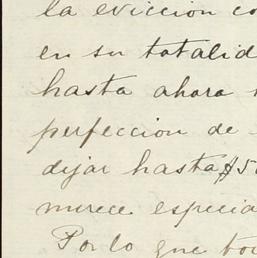 la eviccion co
en su totalid
hasta ahora
perfeccion de
dijar hasta $5
merece especia
Por lo que to